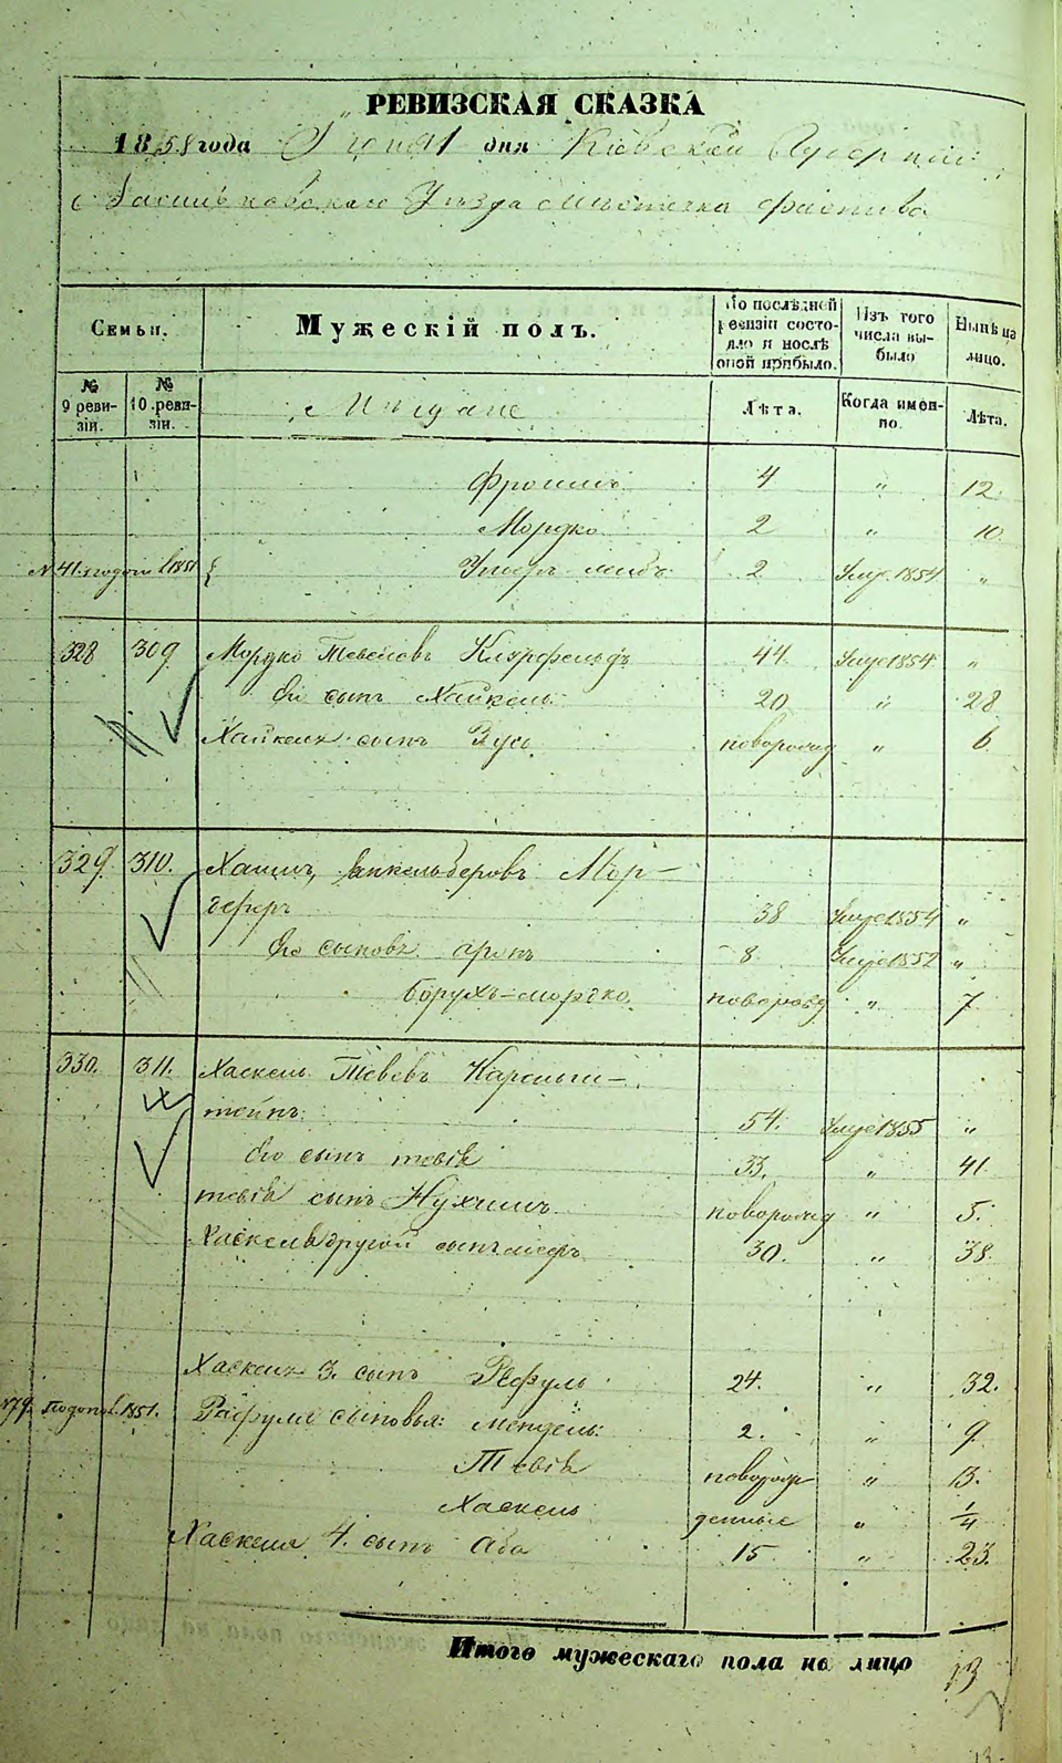 РЕВИЗСКАЯ СКАЗКА
1858 года Іюня 1 дня Кіевской Губерніи
Васильковскаго Уѣзда мѣстечка Фастова
Семьи. Мужескій полъ. По послѣдней ревизіи состояло и послѣ оной прибыло. Изъ того числа выбыло Нынѣ на лицо.
№ 9 ревизіи. № 10 ревизіи. Мещане Лѣта. Когда именно. Лѣта.
Фроимъ 4 " 12.
Мордко 2 " 10.
2 Умр. 1854 "
328 309 Мордко Тевелевъ 44. Умре 1854 "
Его сынъ Хайкель 20 " 28
Хайкеля сынъ Зусь новорожд " 6.
329. 310. Хаимъ Мор-
38 Умре 1854 "
Его сыновья Аронъ 8 Умре 1852 "
Борухъ-Мордко. новорожд " 7
330. 311. Хаскель Тевевъ
штейнъ. 54. Умре 1855 "
Его сынъ Тевія 33. " 41
Тевія сынъ Нухимъ новорожд " 5.
Хаскеля другой сынъ 30. " 38.
Хаскеля 3. сынъ Рафуль 24. " 32.
1851. Рафуля сыновья: Мендель: 2. " 9
Тевія новорож " 3.
Хаскель денные " 1/4
Хаскеля 4. сынъ Аба 15 " 23.
Итого мужескаго пола на лицо 13